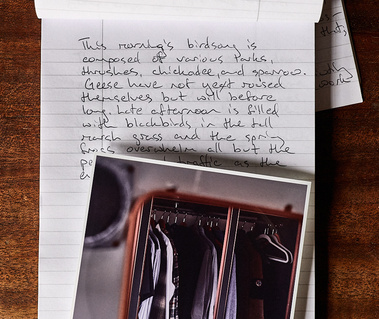 This morning's birdsong is
composed of various larks,
thrushes, chickadee, and sparrow.
Geese have not yet roused
themselves but will before
long. Late afternoon is filled
with blackbirds in the tall
marsh grass and the spring
frogs overwhelm all but the
traffic as the